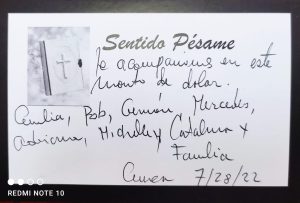 Sentido Pésame
Te acompañamos en este
momto de dolor.
Emilia, Bob, Germán, Mercedes,
Adriana, Michelle y Catalina y
Familia
7/28/22
REDMI NOTE 10